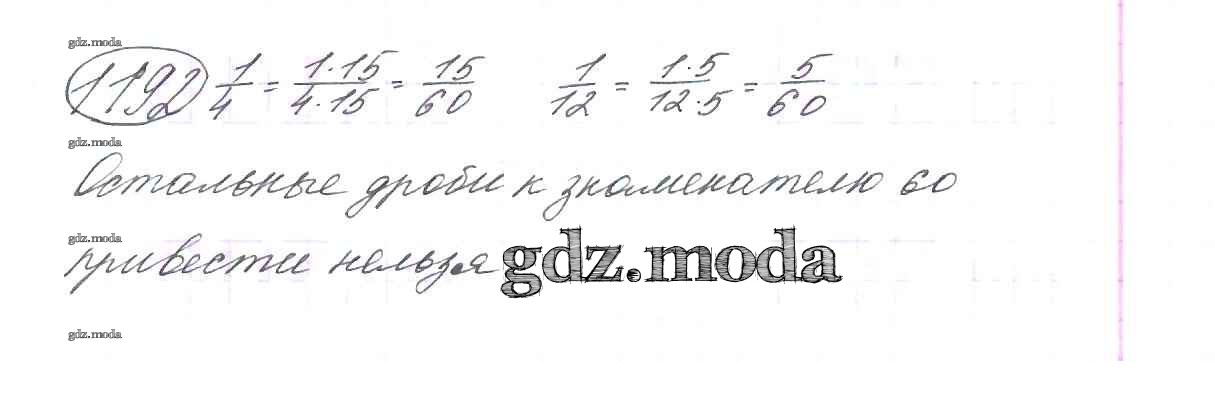 gdz.moda
1192 1/4 = 1·15/4·15 = 15/60 1/12 = 1·5/12·5 = 5/60
gdz.moda
Остальные дроби к знаменателю 60
gdz.moda
привести нельзя gdz.moda
gdz.moda